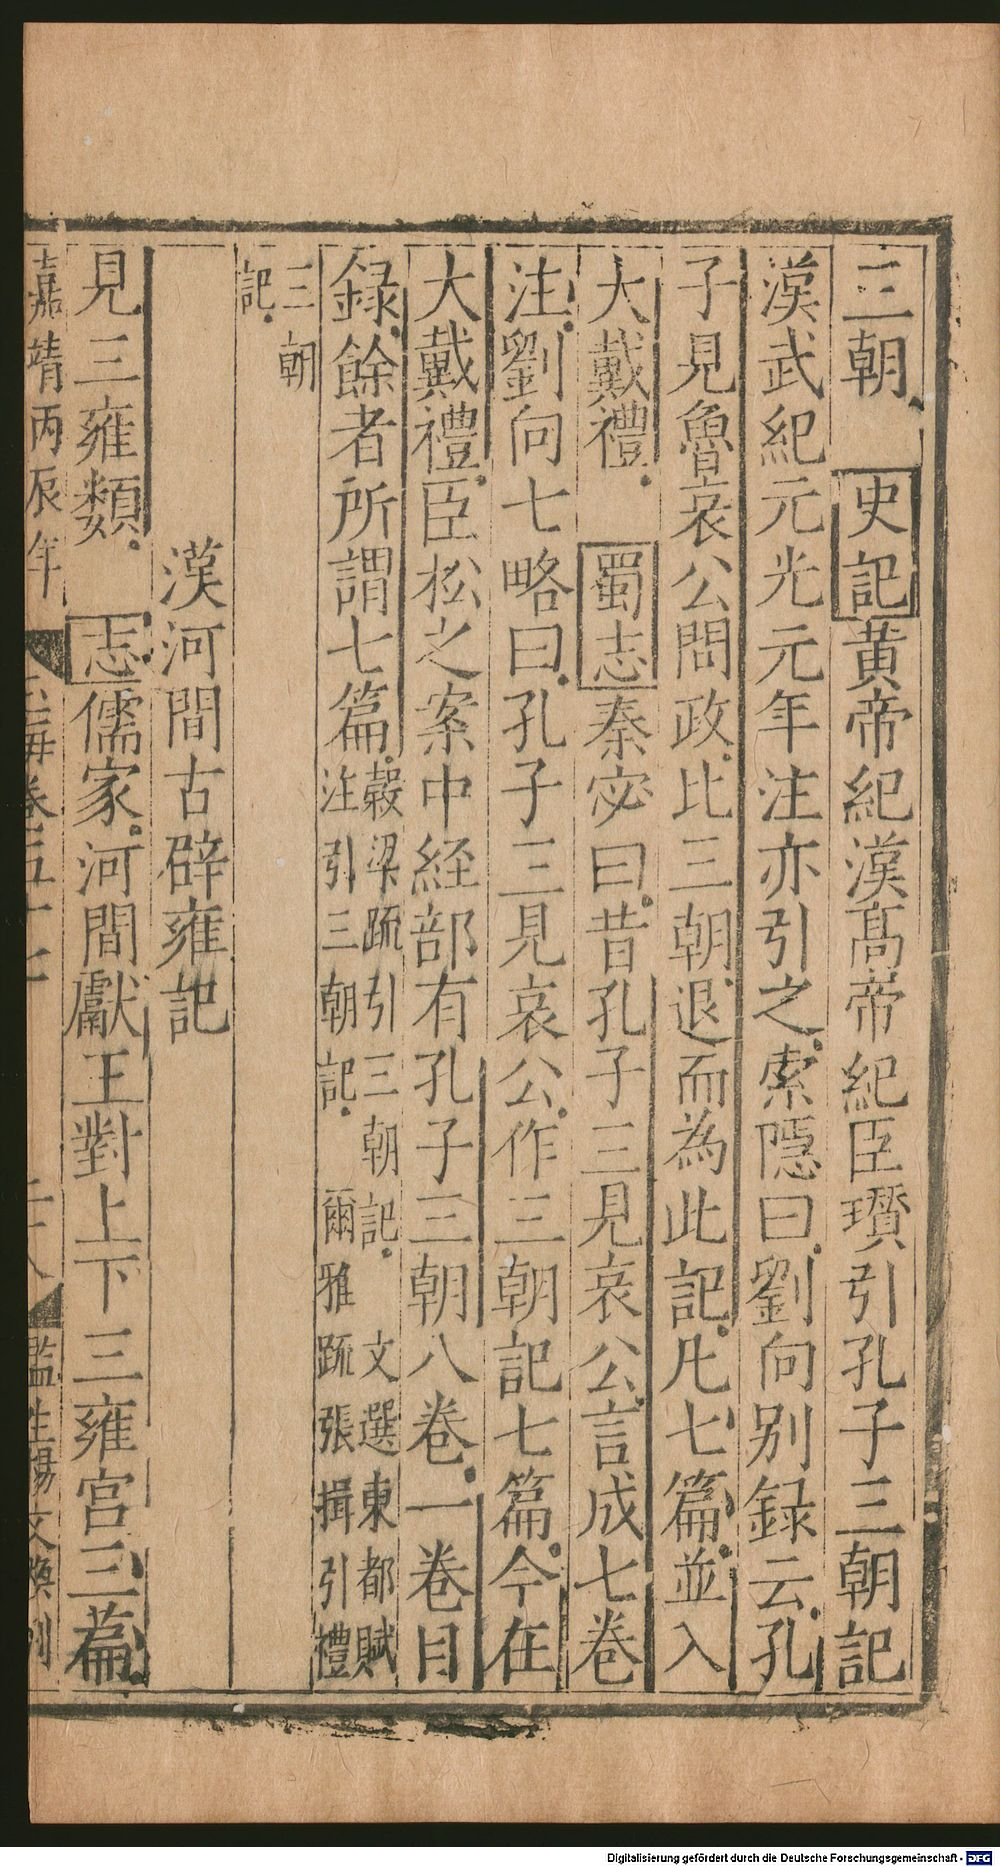 三朝　史記黄帝紀漢髙帝紀臣瓚引孔子三朝記
漢武紀元光元年注亦引之索隱曰劉向别録云孔
子見魯哀公問政比三朝退而為此記凡七篇並入
大戴禮　蜀志秦宓曰昔孔子三見哀公言成七巻
注劉向七略曰孔子三見哀公作三朝記七篇今在
大戴禮臣松之案中経部有孔子三朝八巻一巻目
録餘者所謂七篇
榖梁疏引三朝記　文選東都賦
注引三朝記　爾雅疏張揖引禮
三朝
記
漢河間古辟雍記
見三雍類　志儒家河間獻王對上下三雍宫三篇
嘉靖丙辰年
海卷五十七
監生楊文煥刊
Digitalisierung gefördert durch die Deutsche Forschungsgemeinschaft - DFG